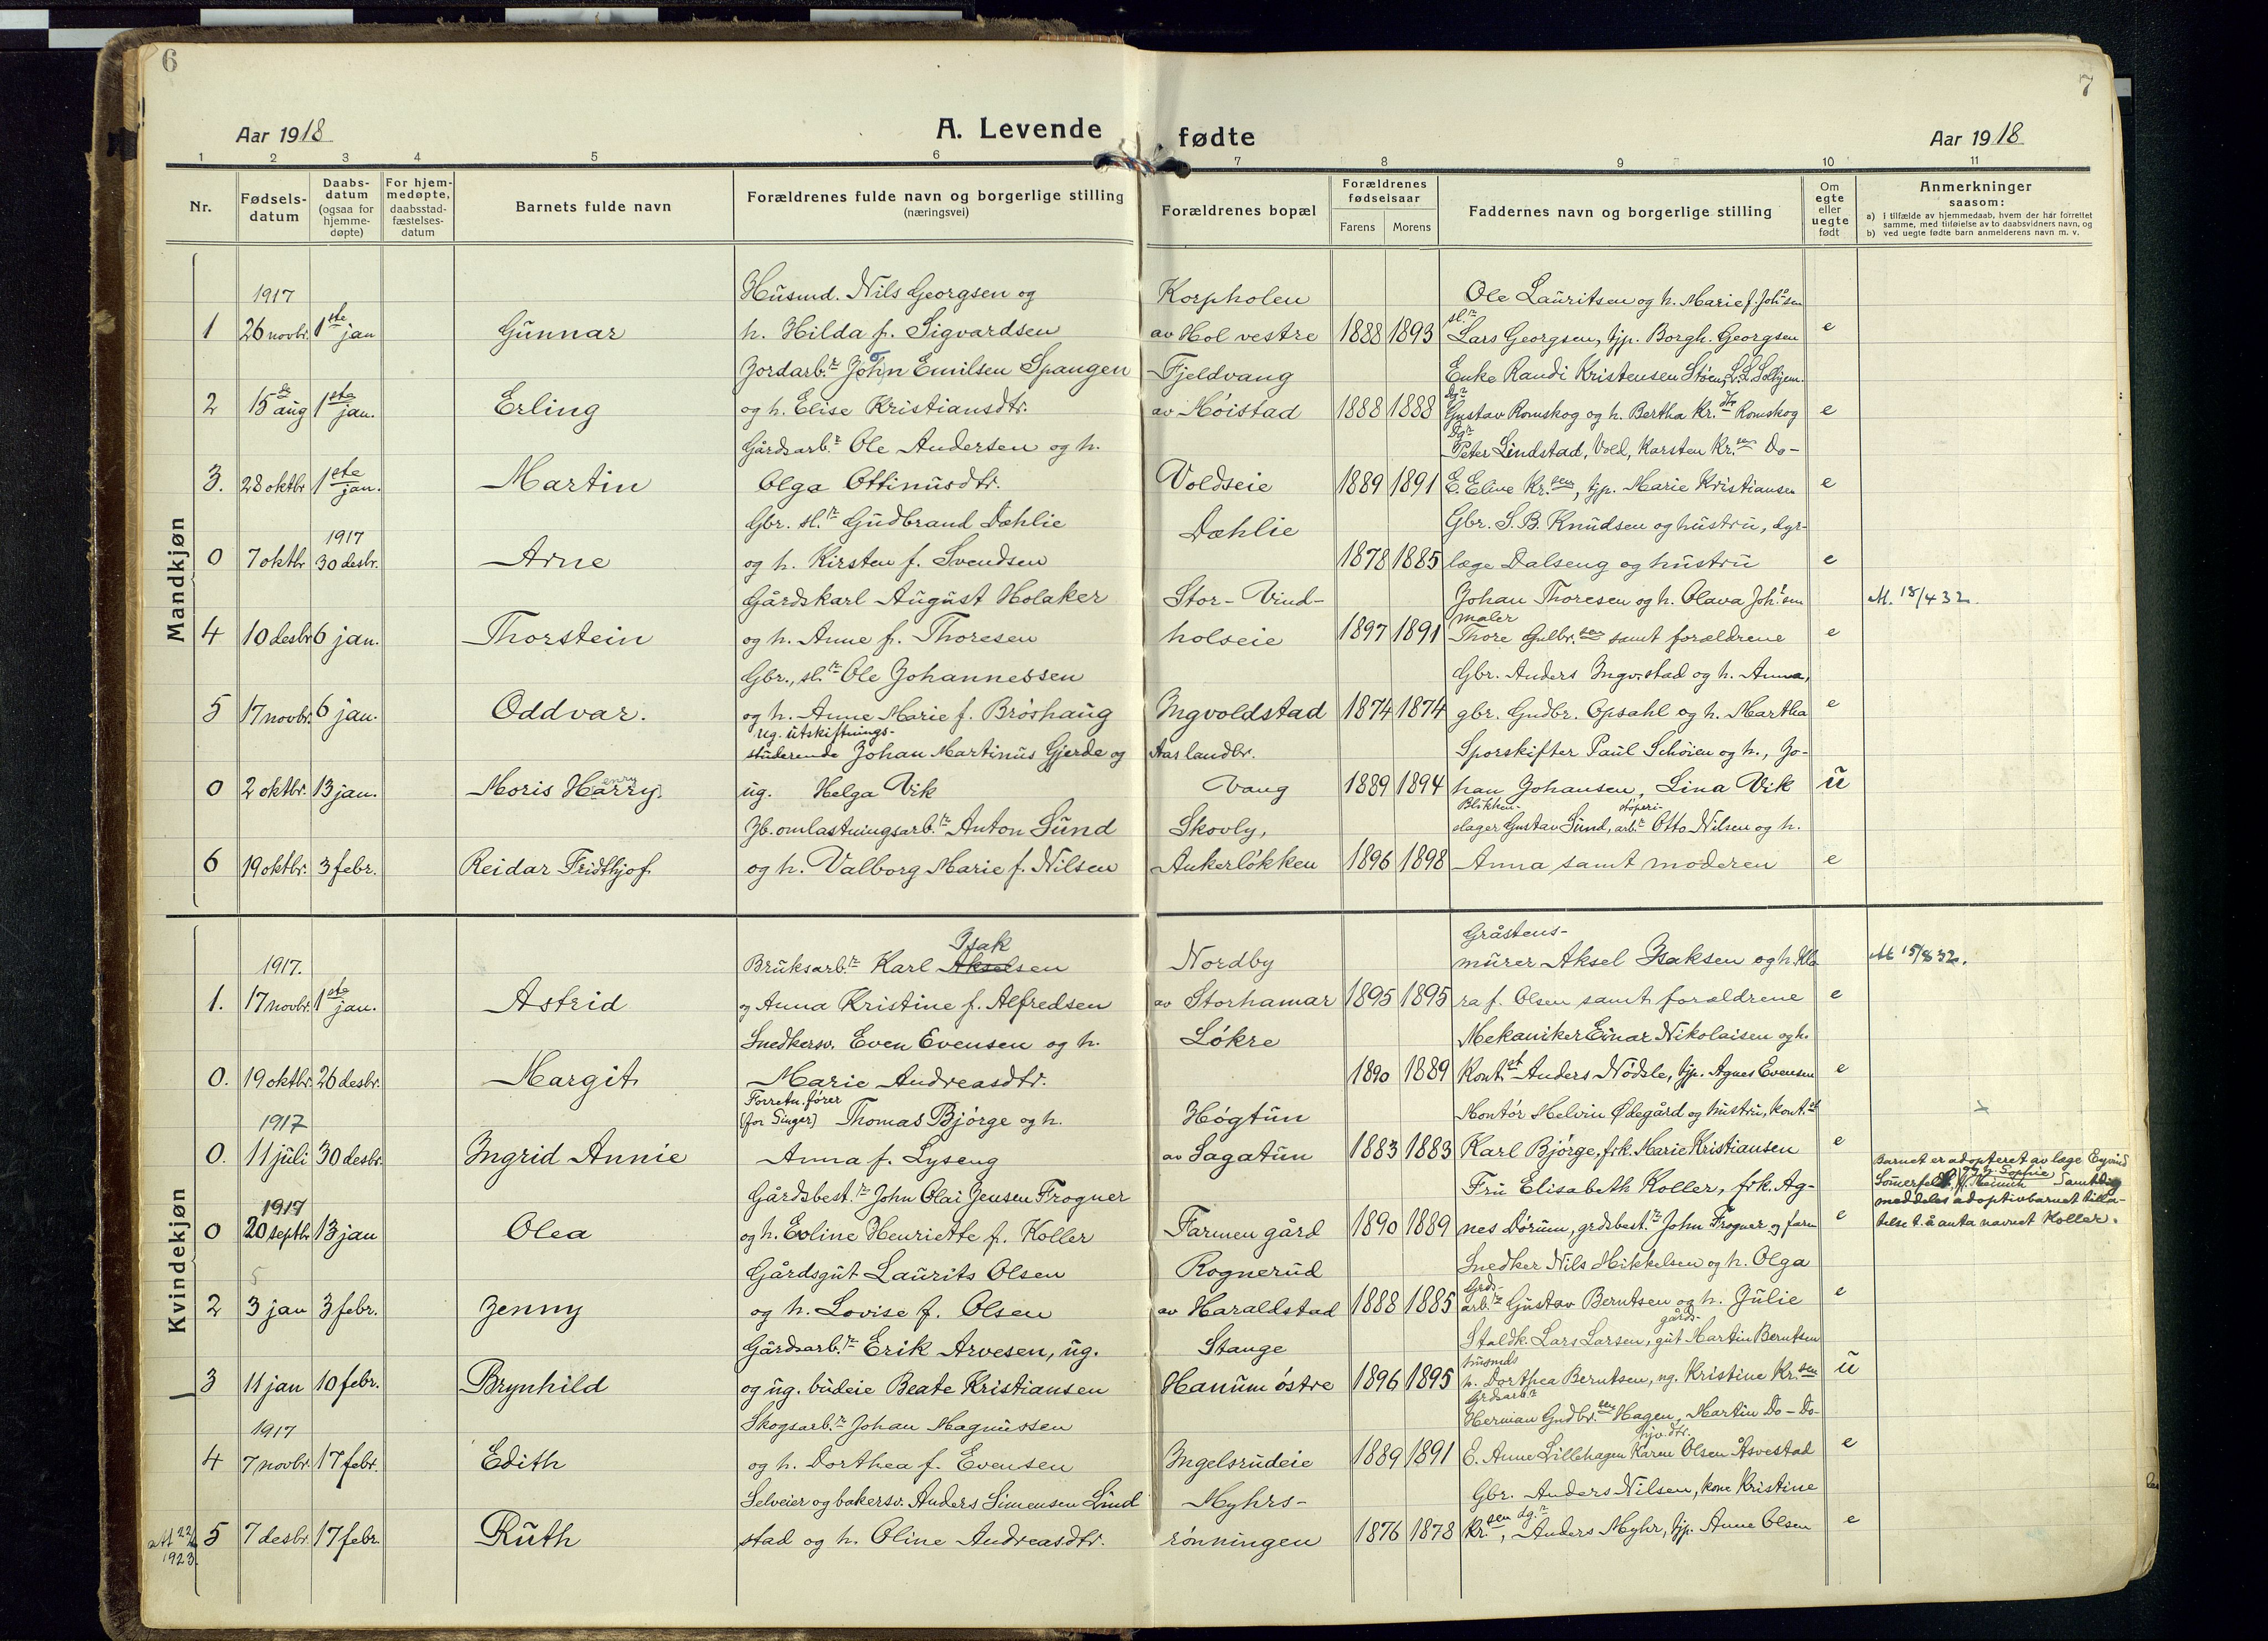 6
7
Aar 1918
A. Levende fødte
Aar 1918
1 2 3 4 5 6 7 8 9 10 11
Nr.
Fødsels-
datum
Daabs-
datum
(ogsaa for
hjemme-
døpte)
For hjem-
medøpte,
daabsstad-
fæstelses-
datum
Barnets fulde navn
Forældrenes fulde navn og borgerlige stilling
(næringsvei)
Forældrenes bopæl
Forældrenes
fødselsaar
Farens Morens
Faddernes navn og borgerlige stilling
Om
egte
eller
uegte
født
Anmerkninger
saasom:
a) i tilfælde av hjemmedaab, hvem der har forrettet
samme, med tilføielse av to daabsvidners navn, og
b) ved uegte fødte barn anmelderens navn m. v.
Mandkjøn
1917 Husmd. Nils Georgsen og Korpholen Ole Lauritsen og h. Marie f. Joh.sen
1 26 novbr. 1ste jan Gunnar h. Hilda f. Sigvardsen av Hol vestre 1888 1893 sl.r Lars Georgsen, tjp. Borgh. Georgsen e
Jordarb.r John Emilsen Spangen Fjeldvang Enke Randi Kristensen Støen, L. L. Solhjem.
2 15de aug 1ste jan. Erling og h. Elise Kristiansdtr. av Møistad 1888 1888 Gustav Romskog og h. Bertha Kr.dtr Romskog e
Gårdsarb.r Ole Andersen og h. Peter Lindstad, Vold, Karsten Kr.sen Do-
3. 28 oktbr 1ste jan. Martin Olga Ottinusdtr. Voldseie 1889 1891 E. Eline Kr.sen, tjp. Marie Kristiansen e
1917 Gbr. sl.r Gudbrand Dæhlie Dæhlie Gbr. S. B. Knudsen og hustru, dyr-
0 7 oktbr 30 desbr. Arne og h. Kirsten f. Svendsen 1878 1885 læge Dalseng og hustru e
Gårdskarl August Holaker Stor-Vind- Johan Thoresen og h. Olava Joh.sen M. 18/4 32.
4 10 desbr 6 jan. Thorstein og h. Anne f. Thoresen holseie 1897 1891 maler Thore Gulbr.sen samt forældrene e
Gbr., sl.r Ole Johannessen Gbr. Anders Ingv.stad og h. Anna,
5 17 novbr. 6 jan. Oddvar. og h. Anne Marie f. Brøshaug Ingvoldstad 1874 1874 gbr. Gudbr. Opsahl og h. Martha e
ug. utskiftnings-
studerende Johan Martinus Gjerde og Aas landbr. Sporskifter Paul Schøien og h., Jo-
0 2 oktbr. 13 jan. Moris Harry. enry ug. Helga Vik Vang 1889 1894 han Johansen, Lina Vik u
Jb. omlastningsarb.r Anton Sund Skovly, Blikken-slager Gustav Sund, støperi-arb.r Otto Nilsen og h.
6 19 oktbr. 3 febr. Reidar Fridthjof og h. Valborg Marie f. Nilsen Ankerløkken 1896 1898 Anna samt moderen e
Kvindekjøn
Isak Gråstens-
1917. Bruksarb.r Karl Akselsen Nordby murer Aksel Isaksen og h. Kla M 15/8 32.
1. 17 novbr. 1ste jan. Astrid og Anna Kristine f. Alfredsen av Storhamar 1895 1895 ra f. Olsen samt forældrene e
Snedkersv. Even Evensen og h. Løkre Mekaniker Einar Nikolaisen og h.
0. 19 oktbr. 26 desbr. Margit Marie Andreasdtr. 1890 1889 Kont.st Anders Nødsle, tjp. Agnes Evensen e
Forretn. fører
1917 (for Singer) Thomas Bjørge og h. Høgtun Montør Melvin Ødegård og hustru, kont.st
0. 11 juli 30 desbr. Ingrid Annie Anna f. Lyseng av Sagatun 1883 1883 Karl Bjørge, frk. Marie Kristiansen e
Barnet er adopteret av læge Eyvind
Gårdsbest.r John Olai Jensen Frogner Fru Elisabeth Koller, frk. Ag- Sømerfelt og h. Sophie f. Heimen Samtidig
1917 meddeles adoptivbarnet tilla-
0 20 septbr 13 jan Olea og h. Evline Henriette f. Koller Farmen gård 1890 1889 nes Dørum, grdsbest.r John Frogner og farm e telse t. å anta navnet Koller.
Gårdsgut Laurits Olsen Rognerud Snedker Nils Mikkelsen og h. Olga
2 3 jan 3 febr. Jenny og h. Lovise f. Olsen av Haraldstad 1888 1885 Grds-arb.r Gustav Berntsen og h. Julie e
Gårdsarb.r Erik Arvesen, ug. Stange Staldk. Lars Larsen, gårds-gut Martin Berntsen
3 11 jan 10 febr. Brynhild og ug. budeie Beate Kristiansen Hanum østre 1896 1895 husmds h. Dorthea Berntsen, ug. Kristine Kr.sen u
1917 Skogsarb.r Johan Magnussen Grdsarb.r Herman Gudbr.sen Hagen, Martin Do-Do-
4 7 novbr. 17 febr. Edith og h. Dorthea f. Evensen Ingelsrudeie 1889 1891 E. Anne Lillehagen Karen Olsen Åsvestad e
Selveier og bakersv. Anders Simensen Lind Myhrs- Gbr. Anders Nilsen, kone Kristine
1923 5 7 desbr. 17 febr. Ruth stad og h. Oline Andreasdtr. rønningen 1876 1878 Kr.sen, dg.r Anders Myhr, tjp. Anne Olsen e